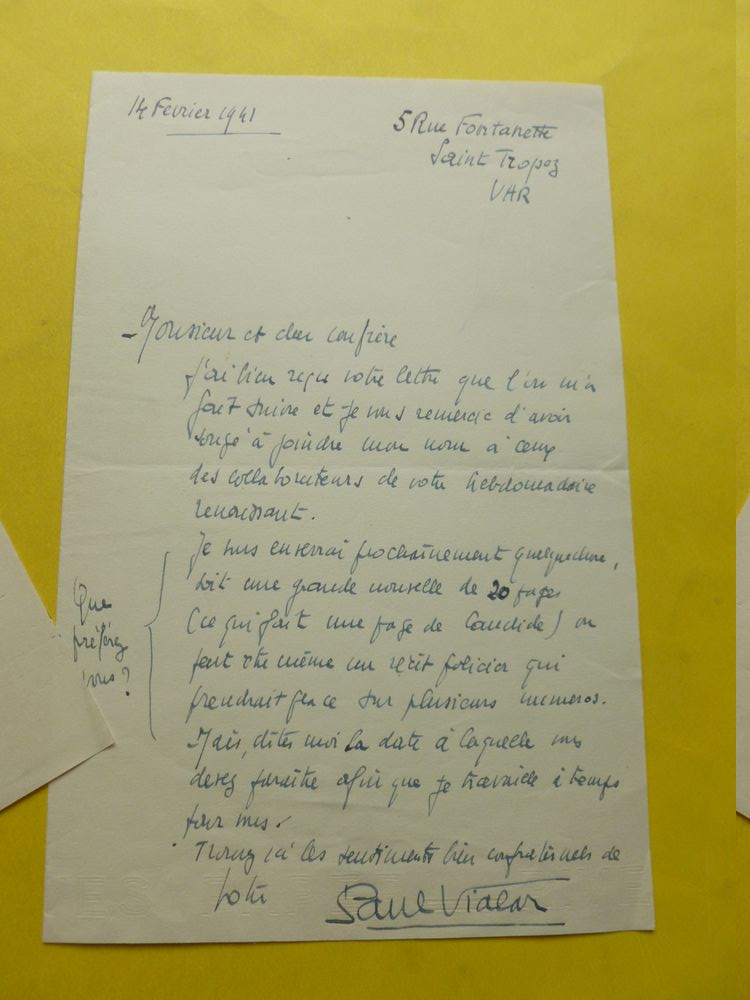 14 Fevrier 1941
5 Rue Fontanette
Saint Tropez
VAR
Monsieur et cher confrère
J'ai bien reçu votre lettre que l'on m'a
fait suivre et je vous remercie d'avoir
songé à joindre mon nom à ceux
des collaborateurs de votre hebdomadaire
renaissant.
Je vous enverrai prochainement quelquechose,
soit une grande nouvelle de 20 pages
(ce qui fait une page de Candide) ou
peut etre même un récit policier qui
prendrait place sur plusieurs numeros.
Que
préférez
vous?
Mais, dites moi la date à laquelle vous
devez paraître afin que je travaille à temps
pour vous.
Trouvez ici les sentiments bien confraternels de
votre
Paul Vialar